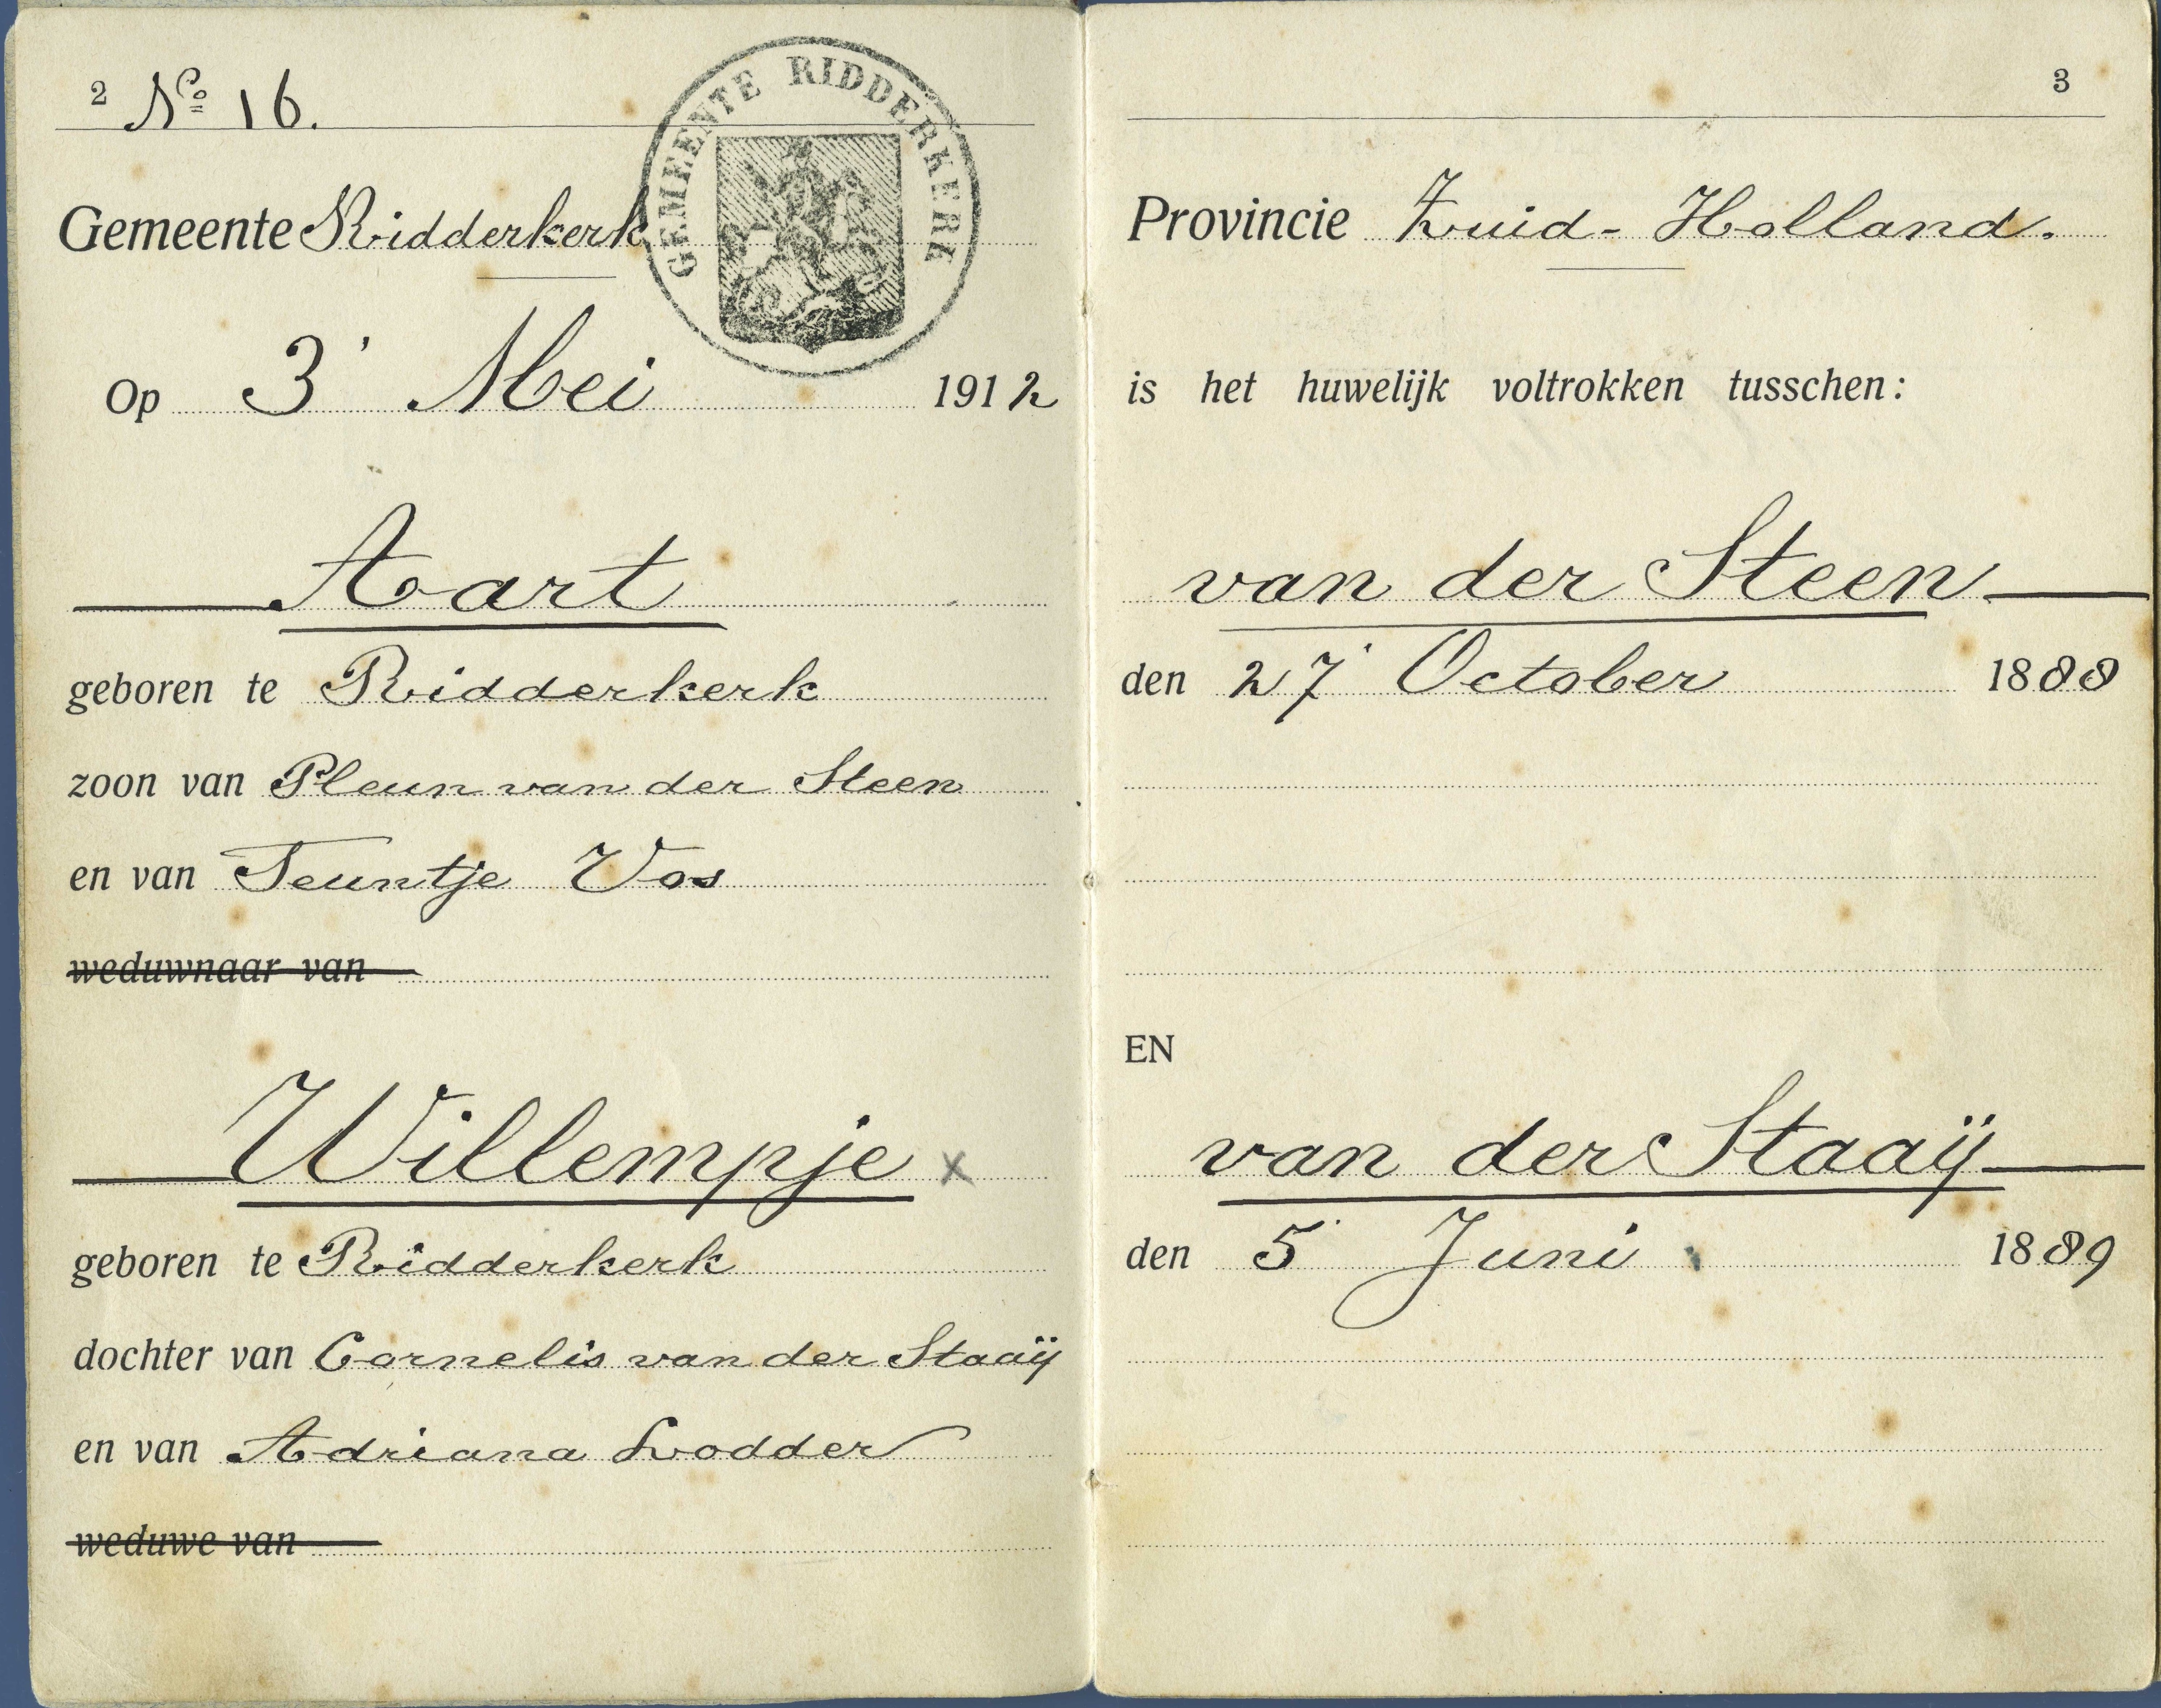 2 No 16.
GEMEENTE RIDDERKERK
Gemeente Ridderkerk
Op 3 Mei 1912
Aart
geboren te Ridderkerk
zoon van Pleun van der Steen
en van Teuntje Vos
weduwnaar van
Willempje x
geboren te Ridderkerk
dochter van Cornelis van der Staaij
en van Adriana Lodder
weduwe van
3
Provincie Zuid-Holland.
is het huwelijk voltrokken tusschen:
van der Steen
den 27 October 1888
EN
van der Staaij
den 5 Juni 1889